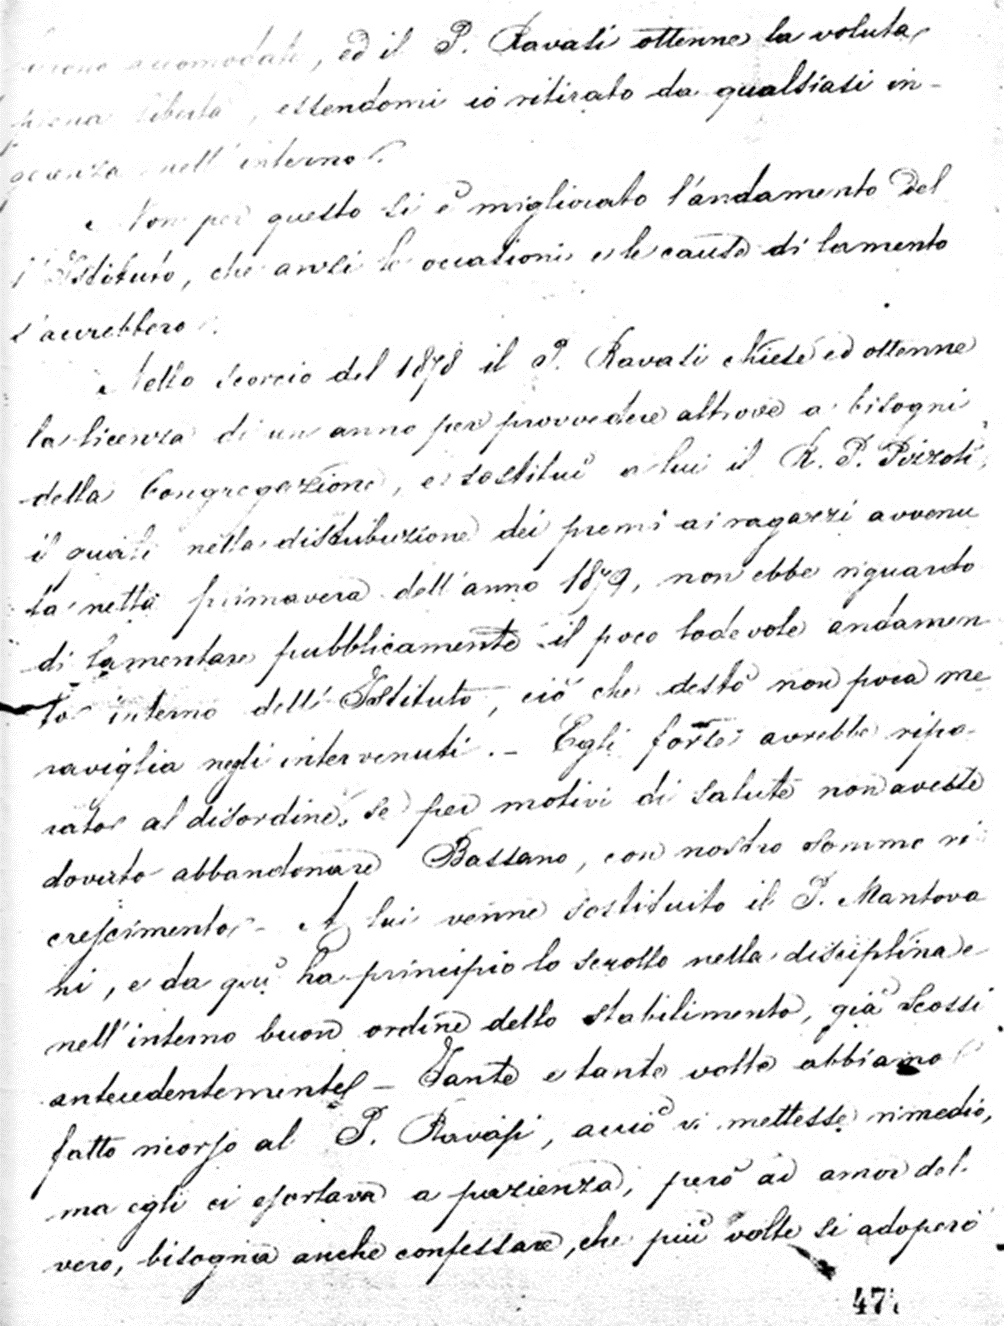 furono accomodate, ed il P. Ravasi ottenne la voluta
piena libertà, essendomi io ritirato da qualsiasi in-
gerenza nell'interno.
Non per questo si è migliorato l'andamento del
l'Istituto, che anzi le occasioni e le cause di lamento
s'accrebbero.
Nello scorcio del 1878 il P. Ravasi chiese ed ottenne
la licenza di un anno per provvedere altrove a bisogni
della Congregazione, e sostituì a lui il R. P. Pizzoti,
il quale nella distribuzione dei premi ai ragazzi avvenu
ta nella primavera dell'anno 1879, non ebbe riguardo
di lamentare pubblicamente il poco lodevole andamen
to interno dell'Istituto, ciò che destò non poca me
raviglia negli intervenuti. – Egli forse avrebbe ripa-
rato al disordine, se per motivi di salute non avesse
dovuto abbandonare Bassano, con nostro sommo rin
crescimento. – A lui venne sostituito il P. Mantova
ni, e da qui ha principio lo scrollo nella disciplina e
nell'interno buon ordine dello stabilimento, già scossi
antecedentemente – Tante e tante volte abbiamo
fatto ricorso al P. Ravasi, acciò vi mettesse rimedio,
ma egli ci esortava a pazienza, però ad amor del
vero, bisogna anche confessare, che più volte si adoperò
47